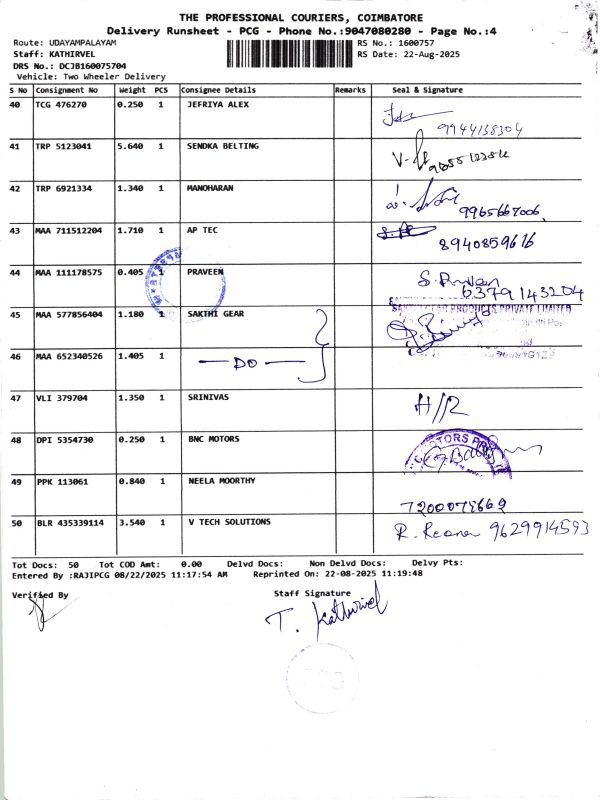 THE PROFESSIONAL COURIERS, COIMBATORE
Delivery Runsheet - PCG - Phone No.:9047080280 - Page No.:4
Route: UDAYAMPALAYAM RS No.: 1600757
Staff: KATHIRVEL RS Date: 22-Aug-2025
DRS No.: DCJB160075704
Vehicle: Two Wheeler Delivery
S No Consignment No Weight PCS Consignee Details Remarks Seal & Signature
40 TCG 476270 0.250 1 JEFRIYA ALEX
9944138304
41 TRP 5123041 5.640 1 SENDKA BELTING
42 TRP 6921334 1.340 1 MANOHARAN
9965667006
43 MAA 711512204 1.710 1 AP TEC
8940859616
44 MAA 111178575 0.405 1 PRAVEEN
6379143204
45 MAA 577856404 1.180 1 SAKTHI GEAR
PRODUCTS PRIVATE LIMITED
46 MAA 652340526 1.405 1 — DO —
47 VLI 379704 1.350 1 SRINIVAS
H//R
48 DPI 5354730 0.250 1 BNC MOTORS
49 PPK 113061 0.840 1 NEELA MOORTHY
50 BLR 435339114 3.540 1 V TECH SOLUTIONS
9629914593
Tot Docs: 50 Tot COD Amt: 0.00 Delvd Docs: Non Delvd Docs: Delvy Pts:
Entered By :RAJIPCG 08/22/2025 11:17:54 AM Reprinted On: 22-08-2025 11:19:48
Verified By Staff Signature
T. Kathirvel